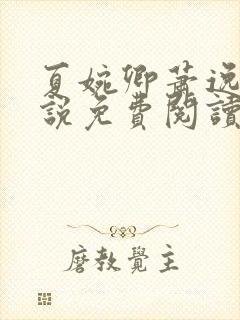 夏婉卿萧逸
說免費閱讀
磨教覺主